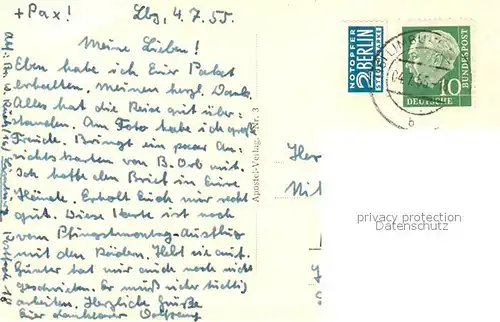 + Pax! Lbg, 4.7.55.
Meine Lieben!
Eben habe ich Euer Paket
erhalten. Meinen herzl. Dank.
Alles hat die Reise gut über-
standen. Am Foto habe ich große
Freude. Bringt ein paar An-
sichtskarten von B. Orb mit.
Ich hoffe den Brief in Eure
Hände. Erholt Euch nur recht
gut. Diese Karte ist noch
vom Pfingstmontag-Ausflug
mit den Rädern. Hebt sie auf.
Günter hat mir auch noch nicht
geschrieben. Er muß nicht tüchtig
arbeiten. Herzliche Grüße
Euer dankbarer Wolfgang
Postfach 18
Apostel-Verlag, Nr. 3
NOTOPFER
2 BERLIN
STEUERMARKE
LIMBURG
04.7.55
b
10
DEUTSCHE
BUNDESPOST
Her
Mit
privacy protection
Datenschutz